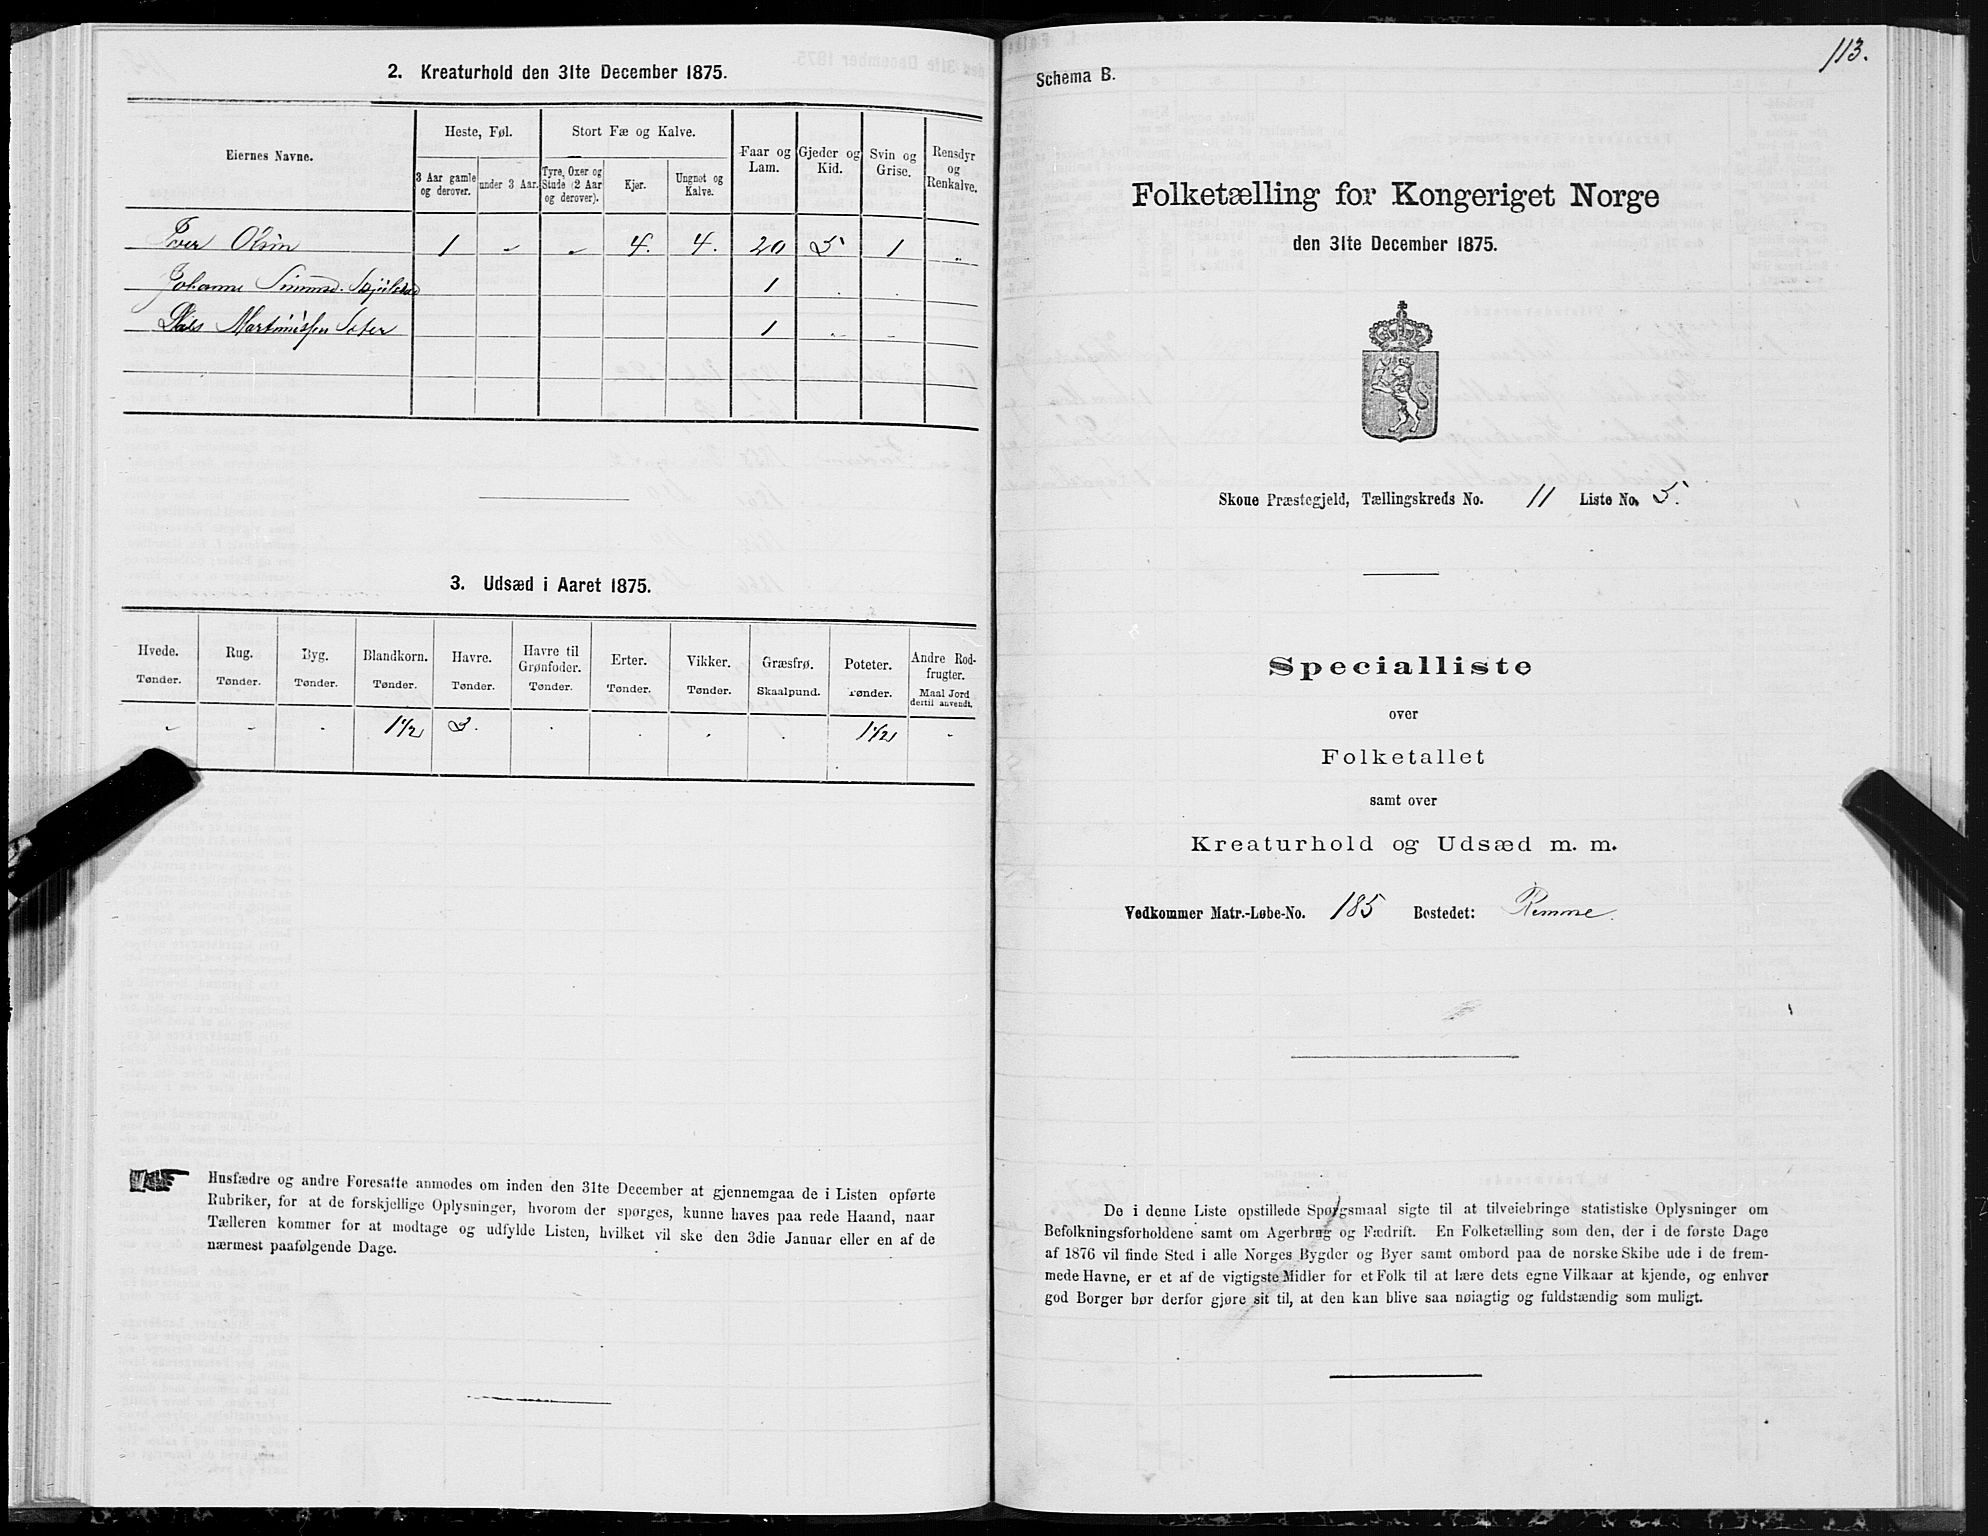 2. Kreaturhold den 31te December 1875.
Eiernes Navne.
Heste, Føl.
Stort Fæ og Kalve.
Faar og Lam.
Gjeder og Kid.
Svin og Grise.
Rensdyr og Renkalve.
3 Aar gamle og derover.
under 3 Aar.
Tyre, Oxer og Stude (2 Aar og derover).
Kjør.
Ungnøt og Kalve.
Iver Olsen 1 „ „ 4. 4. 20 5 1 „
Johanne 1
Martinissen Sæter 1
3. Udsæd i Aaret 1875.
Hvede. Rug. Byg. Blandkorn. Havre. Havre til Grønfoder. Erter. Vikker. Græsfrø. Poteter. Andre Rodfrugter.
Tønder. Tønder. Tønder. Tønder. Tønder. Tønder. Tønder. Tønder. Skaalpund. Tønder. Maal Jord dertil anvendt.
„ „ . 1 1/2 3. . . . . 1 1/2 „
Husfædre og andre Foresatte anmodes om inden den 31te December at gjennemgaa de i Listen opførte
Rubriker, for at de forskjellige Oplysninger, hvorom der spørges, kunne haves paa rede Haand, naar
Tælleren kommer for at modtage og udfylde Listen, hvilket vil ske den 3die Januar eller en af de
nærmest paafølgende Dage.
113.
Schema B.
Folketælling for Kongeriget Norge
den 31te December 1875.
Skoue Præstegjeld, Tællingskreds No. 11 Liste No. 5.
Specialliste
over
Folketallet
samt over
Kreaturhold og Udsæd m. m.
Vedkommer Matr.-Løbe-No. 185 Bostedet: Remme.
De i denne Liste opstillede Spørgsmaal sigte til at tilveiebringe statistiske Oplysninger om
Befolkningsforholdene samt om Agerbrug og Fædrift. En Folketælling som den, der i de første Dage
af 1876 vil finde Sted i alle Norges Bygder og Byer samt ombord paa de norske Skibe ude i de frem-
mede Havne, er et af de vigtigste Midler for et Folk til at lære dets egne Vilkaar at kjende, og enhver
god Borger bør derfor gjøre sit til, at den kan blive saa nøiagtig og fuldstændig som muligt.